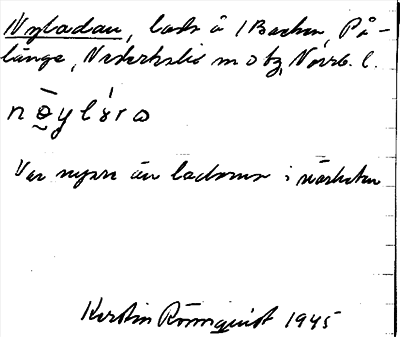 Nyladan, lada å 1 Backen, På-
länge, Nederkalix m o tg, Norrb. l.
nə̀ylɑ́ra
Var nyare än ladorna i närheten
Kerstin Rönnquist 1945